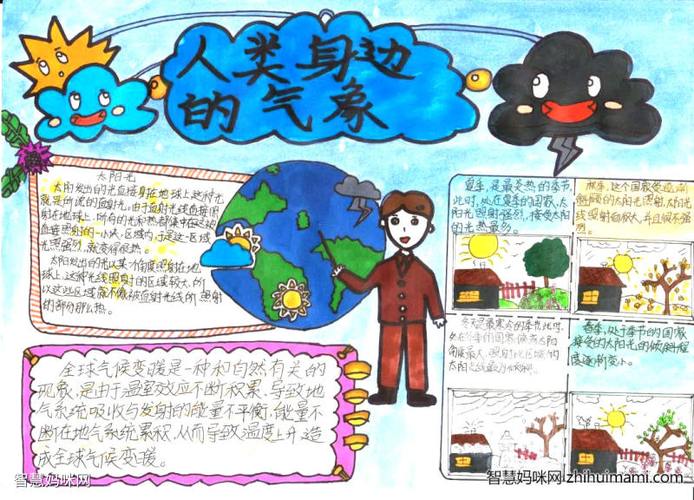 人类身边
的气象
太阳光
太阳发出的光直接射在地球上,这样光
就是所谓的直射光。由于直射光线直接照
射在地球上,所有的光和热都集中在这块
直接照射的一小块区域内,于是这一区域
光照强烈,就变得很热。
太阳发出的光以某个角度照射在地
球上,这样光线照射的区域较大,所
以这边区域就不像被直射光线所照射
的部分那么热。
全球气候变暖是一种和自然有关的
现象,是由于温室效应不断积累,导致地
气系统吸收与发射的能量不平衡,能量不
断在地气系统累积,从而导致温度上升,造
成全球气候变暖。
夏季,是最炎热的季节,
此时,处在夏季的国家,太
阳光照射强烈,接受太阳
的光热最多。
秋季,这个国家受
倾斜的太阳光照射,太阳光
线照射面积大,并且很不强
烈。
冬天是最寒冷的季节,此时,
太阳
角度最大,照射在
太阳
春季,处于季节的国家
接受的太阳光的倾斜程
度逐渐变小。
智慧妈咪网
智慧妈咪网zhihuimami.com